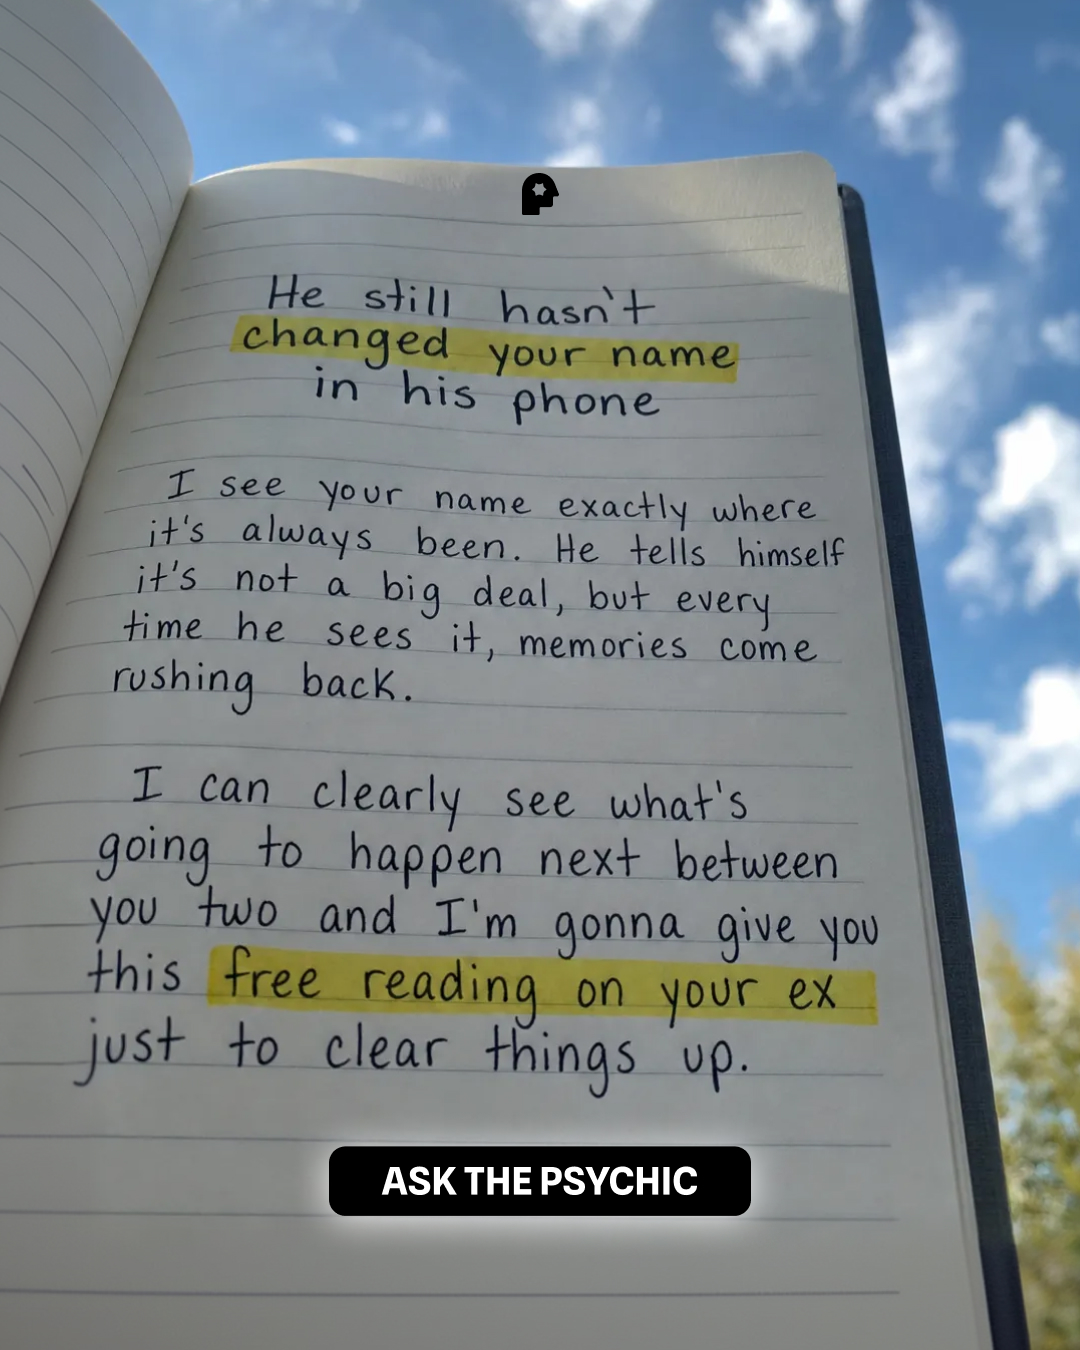 He still hasn't
changed your name
in his phone
I see your name exactly where
it's always been. He tells himself
it's not a big deal, but every
time he sees it, memories come
rushing back.
I can clearly see what's
going to happen next between
you two and I'm gonna give you
this free reading on your ex
just to clear things up.
ASK THE PSYCHIC